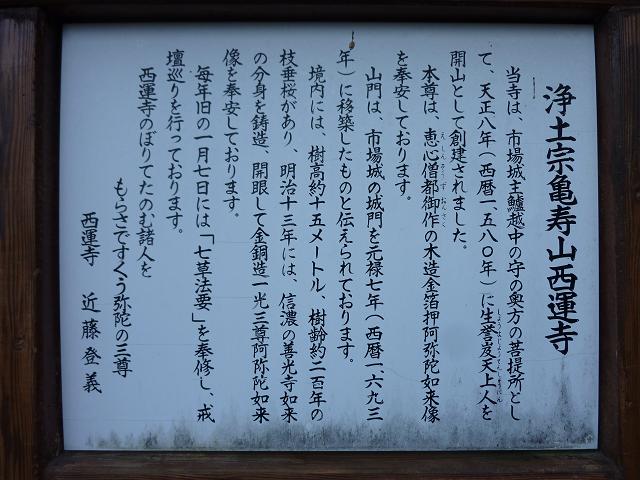 浄土宗亀寿山西運寺
当寺は、市場城主鱸越中の守の奥方の菩提所とし
て、天正八年(西暦一、五八〇年)に生誉及天上人を
開山として創建されました。
本尊は、恵心僧都御作の木造金箔押阿弥陀如来像
を奉安しております。
山門は、市場城の城門を元禄七年(西暦一、六九三
年)に移築したものと伝えられております。
境内には、樹高約十五メートル、樹齢約二百年の
枝垂桜があり、明治十三年には、信濃の善光寺如来
の分身を鋳造、開眼して金銅造一光三尊阿弥陀如来
像を奉安しております。
毎年旧の一月七日には「七草法要」を奉修し、戒
壇巡りを行っております。
西運寺のぼりてたのむ諸人を
もらさですくう弥陀の三尊
西運寺 近藤登義